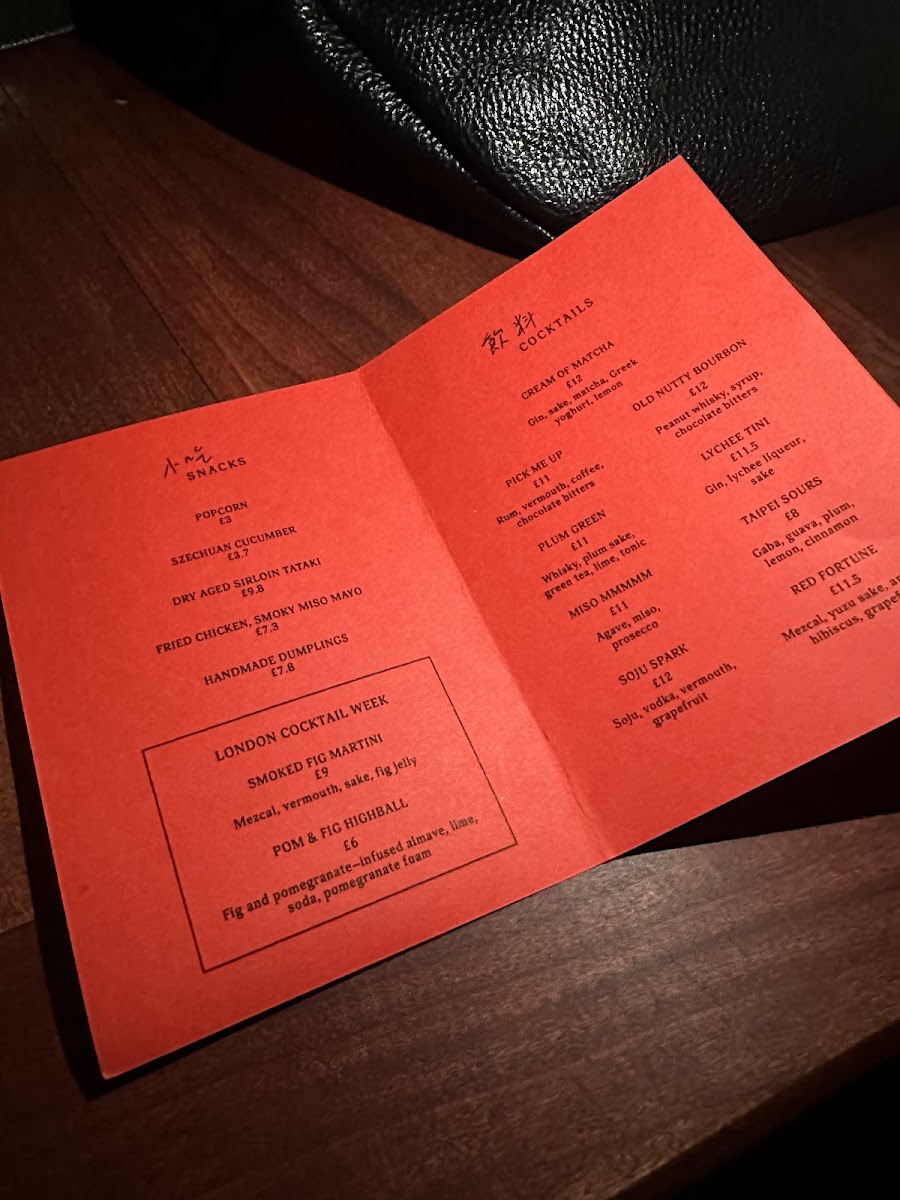 小吃
SNACKS
POPCORN
£3
SZECHUAN CUCUMBER
£3.7
DRY AGED SIRLOIN TATAKI
£9.8
FRIED CHICKEN, SMOKY MISO MAYO
£7.3
HANDMADE DUMPLINGS
£7.8
LONDON COCKTAIL WEEK
SMOKED FIG MARTINI
£9
Mezcal, vermouth, sake, fig jelly
POM & FIG HIGHBALL
£6
Fig and pomegranate-infused almave, lime,
soda, pomegranate foam
飲料
COCKTAILS
CREAM OF MATCHA
£12
Gin, sake, matcha, Greek
yoghurt, lemon
PICK ME UP
£11
Rum, vermouth, coffee,
chocolate bitters
PLUM GREEN
£11
Whisky, plum sake,
green tea, lime, tonic
MISO MMMMM
£11
Agave, miso,
prosecco
SOJU SPARK
£12
Soju, vodka, vermouth,
grapefruit
OLD NUTTY BOURBON
£12
Peanut whisky, syrup,
chocolate bitters
LYCHEE TINI
£11.5
Gin, lychee liqueur,
sake
TAIPEI SOURS
£8
Gaba, guava, plum,
lemon, cinnamon
RED FORTUNE
£11.5
Mezcal, yuzu sake,
hibiscus,